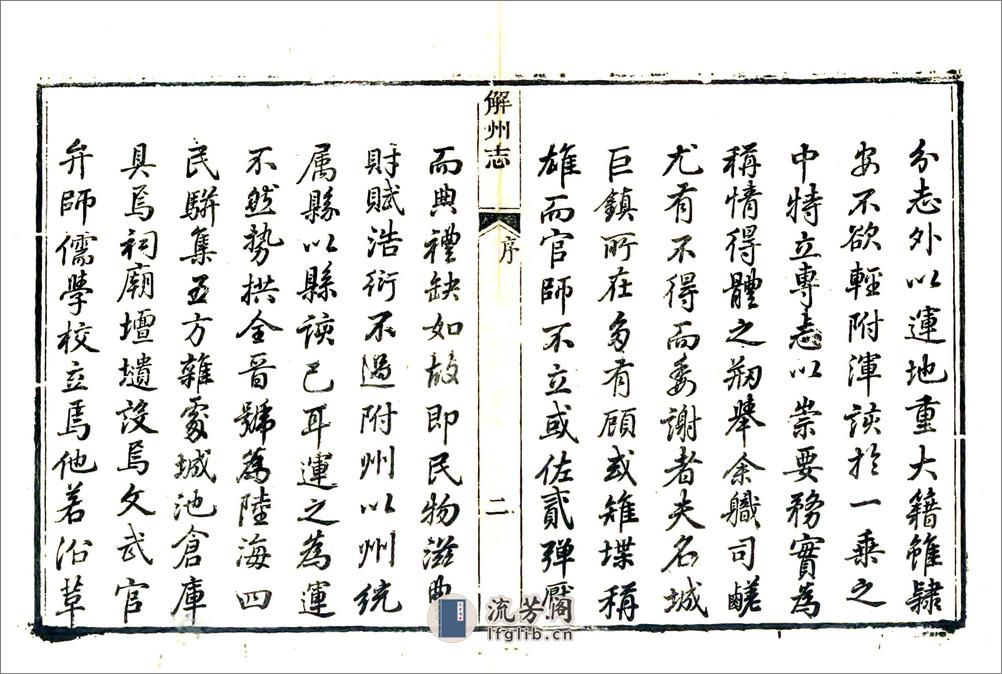 分志外以運地重大籍雖隸
安不欲輕附渾談於一乘之
中特立專志以崇要務實為
稱情得體之剏舉余職司鹺
尤有不得而委謝者夫名城
巨鎮所在多有顧或雉堞稱
雄而官師不立或佐貳彈壓
解州志
序
二
而典禮缺如故即民物滋
財賦浩衍不過附州以州統
属縣以縣該已耳運之為運
不然勢拱全晉號為陸海四
民駢集五方雜處城池倉庫
具焉祠廟壇壝設焉文武官
弁師儒學校立焉他若沿革
流芳閣
lfglib.cn